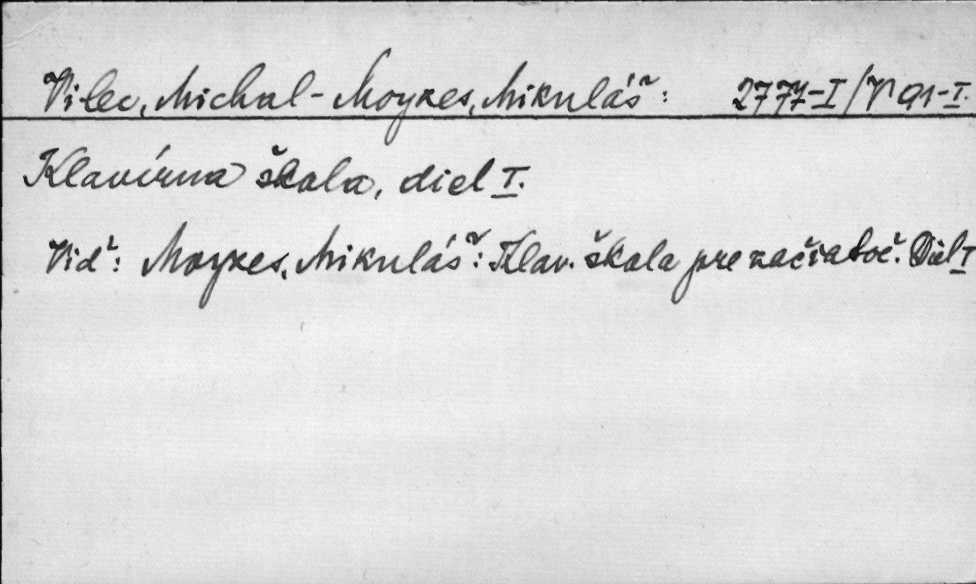 Vilec, Michal - Moyzes, Mikuláš: 2777-I/V 91-I.
Klavírna škola, diel I.
Viď: Moyzes, Mikuláš: Klav. škola pre začiatoč. Diel I